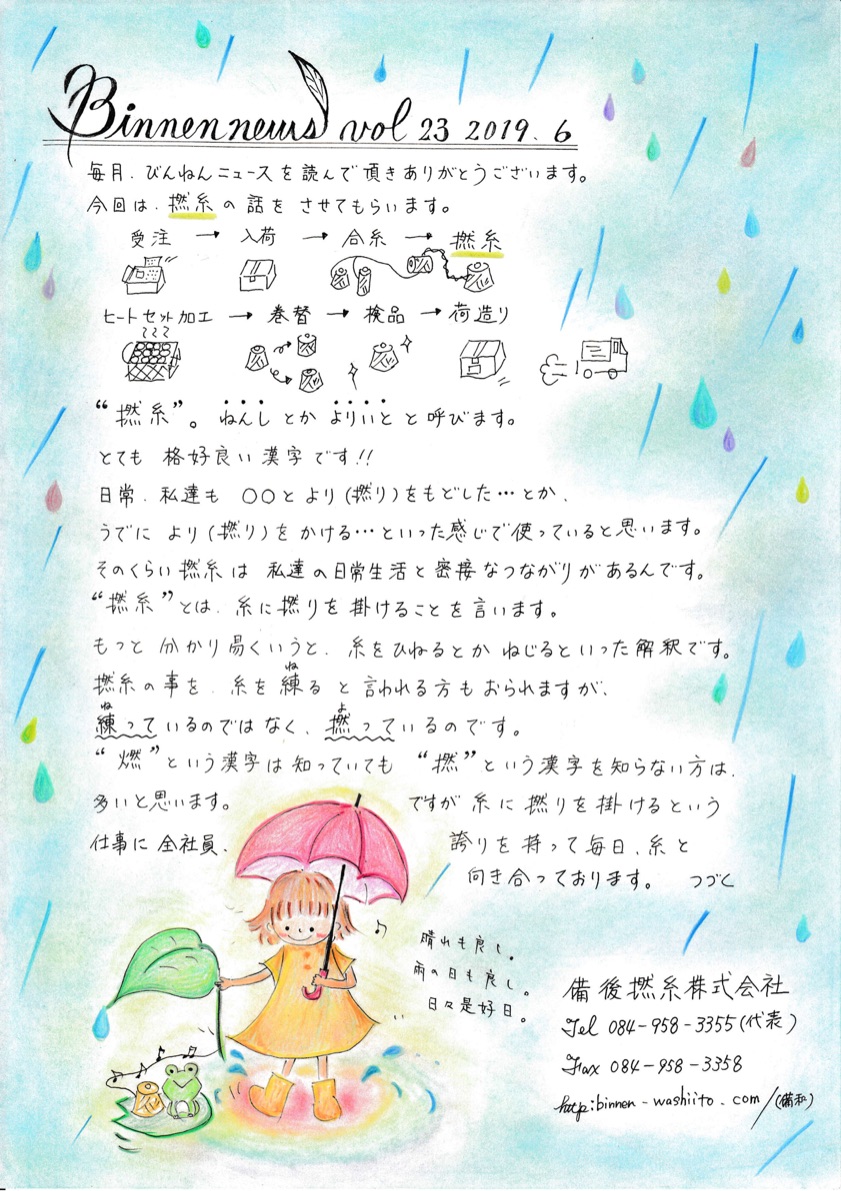 Binnen news vol 23 2019. 6
毎月、びんねんニュースを読んで頂きありがとうございます。
今回は、撚糸の話をさせてもらいます。
受注 → 入荷 → 合糸 → 撚糸
ヒートセット加工 → 巻替 → 検品 → 荷造り
“撚糸”。ねんしとかよりいとと呼びます。
とても格好良い漢字です!!
日常、私達も ○○とより(撚り)をもどした…とか、
うでにより(撚り)をかける…といった感じで使っていると思います。
そのくらい撚糸は私達の日常生活と密接なつながりがあるんです。
“撚糸”とは、糸に撚りを掛けることを言います。
もっと分かり易くいうと、糸をひねるとかねじるといった解釈です。
ね
撚糸の事を、糸を練ると言われる方もおられますが、
ね よ
練っているのではなく、撚っているのです。
“燃”という漢字は知っていても “撚”という漢字を知らない方は、
多いと思います。 ですが糸に撚りを掛けるという
仕事に全社員、 誇りを持って毎日、糸と
向き合っております。 つづく
晴れも良し。
雨の日も良し。
日々是好日。
備後撚糸株式会社
Tel 084-958-3355(代表)
Fax 084-958-3358
http:binnen-washiito.com/(備和)